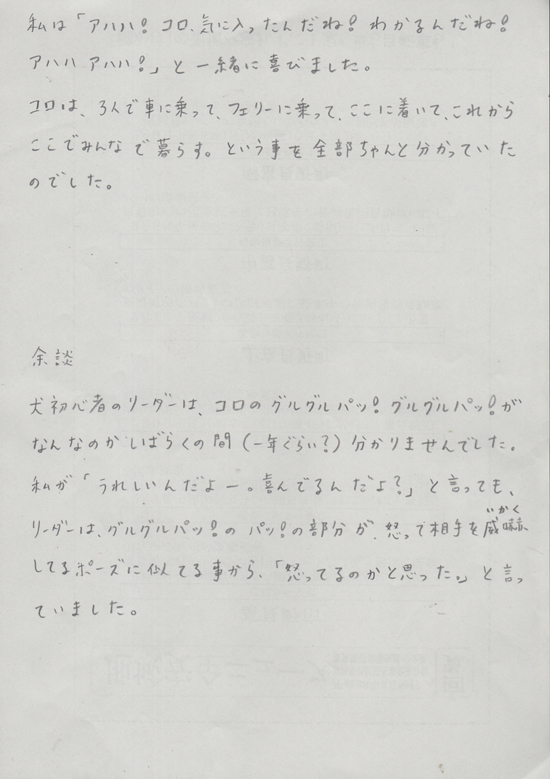 私は「アハハ！コロ、気に入ったんだね！わかるんだね！
アハハ アハハ！」と一緒に喜びました。
コロは、3人で車に乗って、フェリーに乗って、ここに着いて、これから
ここでみんなで暮らす。という事を全部ちゃんと分かっていた
のでした。
余談
犬初心者のリーダーは、コロのグルグルパッ！グルグルパッ！が
なんなのかしばらくの間（一年ぐらい？）分かりませんでした。
私が「うれしいんだよー。喜んでるんだよ？」と言っても、
いかく
リーダーは、グルグルパッ！のパッ！の部分が、怒って相手を威嚇
してるポーズに似てる事から、「怒ってるのかと思った。」と言っ
ていました。